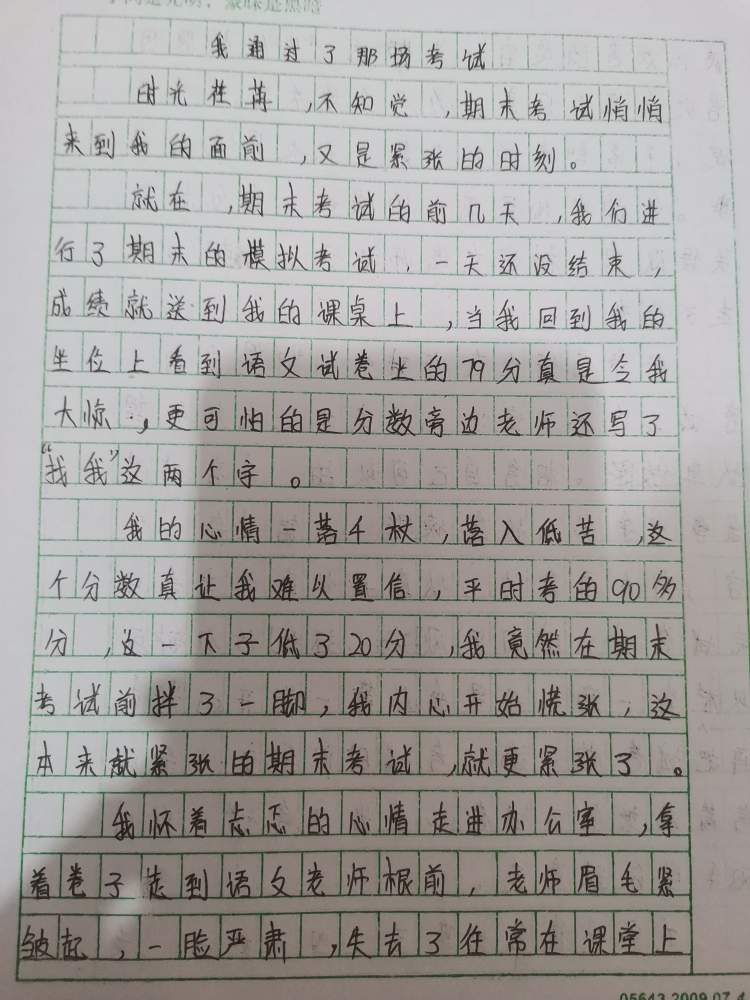 我通过了那场考试
时光荏苒,不知觉,期末考试悄悄
来到我的面前,又是紧张的时刻。
就在,期末考试的前几天,我们进
行了期末的模拟考试,一天还没结束,
成绩就送到我的课桌上,当我回到我的
坐位上看到语文试卷上的79分真是令我
大惊,更可怕的是分数旁边老师还写了
“找我”这两个字。
我的心情一落千杖,落入低苦,这
个分数真让我难以置信,平时考的90多
分,这一下子低了20分,我竟然在期末
考试前拌了一脚,我内心开始慌张,这
本来就紧张的期末考试,就更紧张了。
我怀着忐忑的心情走进办公室,拿
着卷子走到语文老师根前,老师眉毛紧
皱起,一脸严肃,失去了往常在课堂上
05643 2009.07